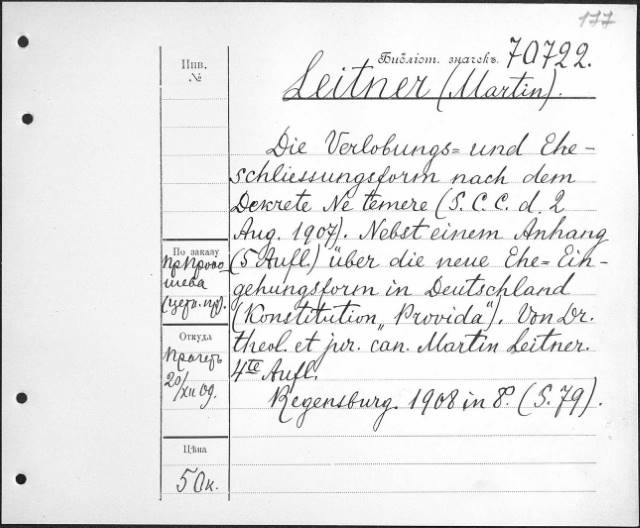 177
Библіот. значекъ. 70722.
Инв.
№
Leitner (Martin).
Die Verlobungs= und Ehe-
schliessungsform nach dem
Dekrete Ne temere (S. C. C. d. 2
Aug. 1907). Nebst einem Anhang
(5 Aufl.) über die neue Ehe=Ein-
gehungsform in Deutschland
(Konstitution „Provida"). Von Dr.
theol. et jur. can. Martin Leitner.
4te Aufl.
Regensburg. 1908 in 8º. (S. 79).
По заказу
(церк. пр).
Откуда
20/XII 09.
Цѣна
50к.